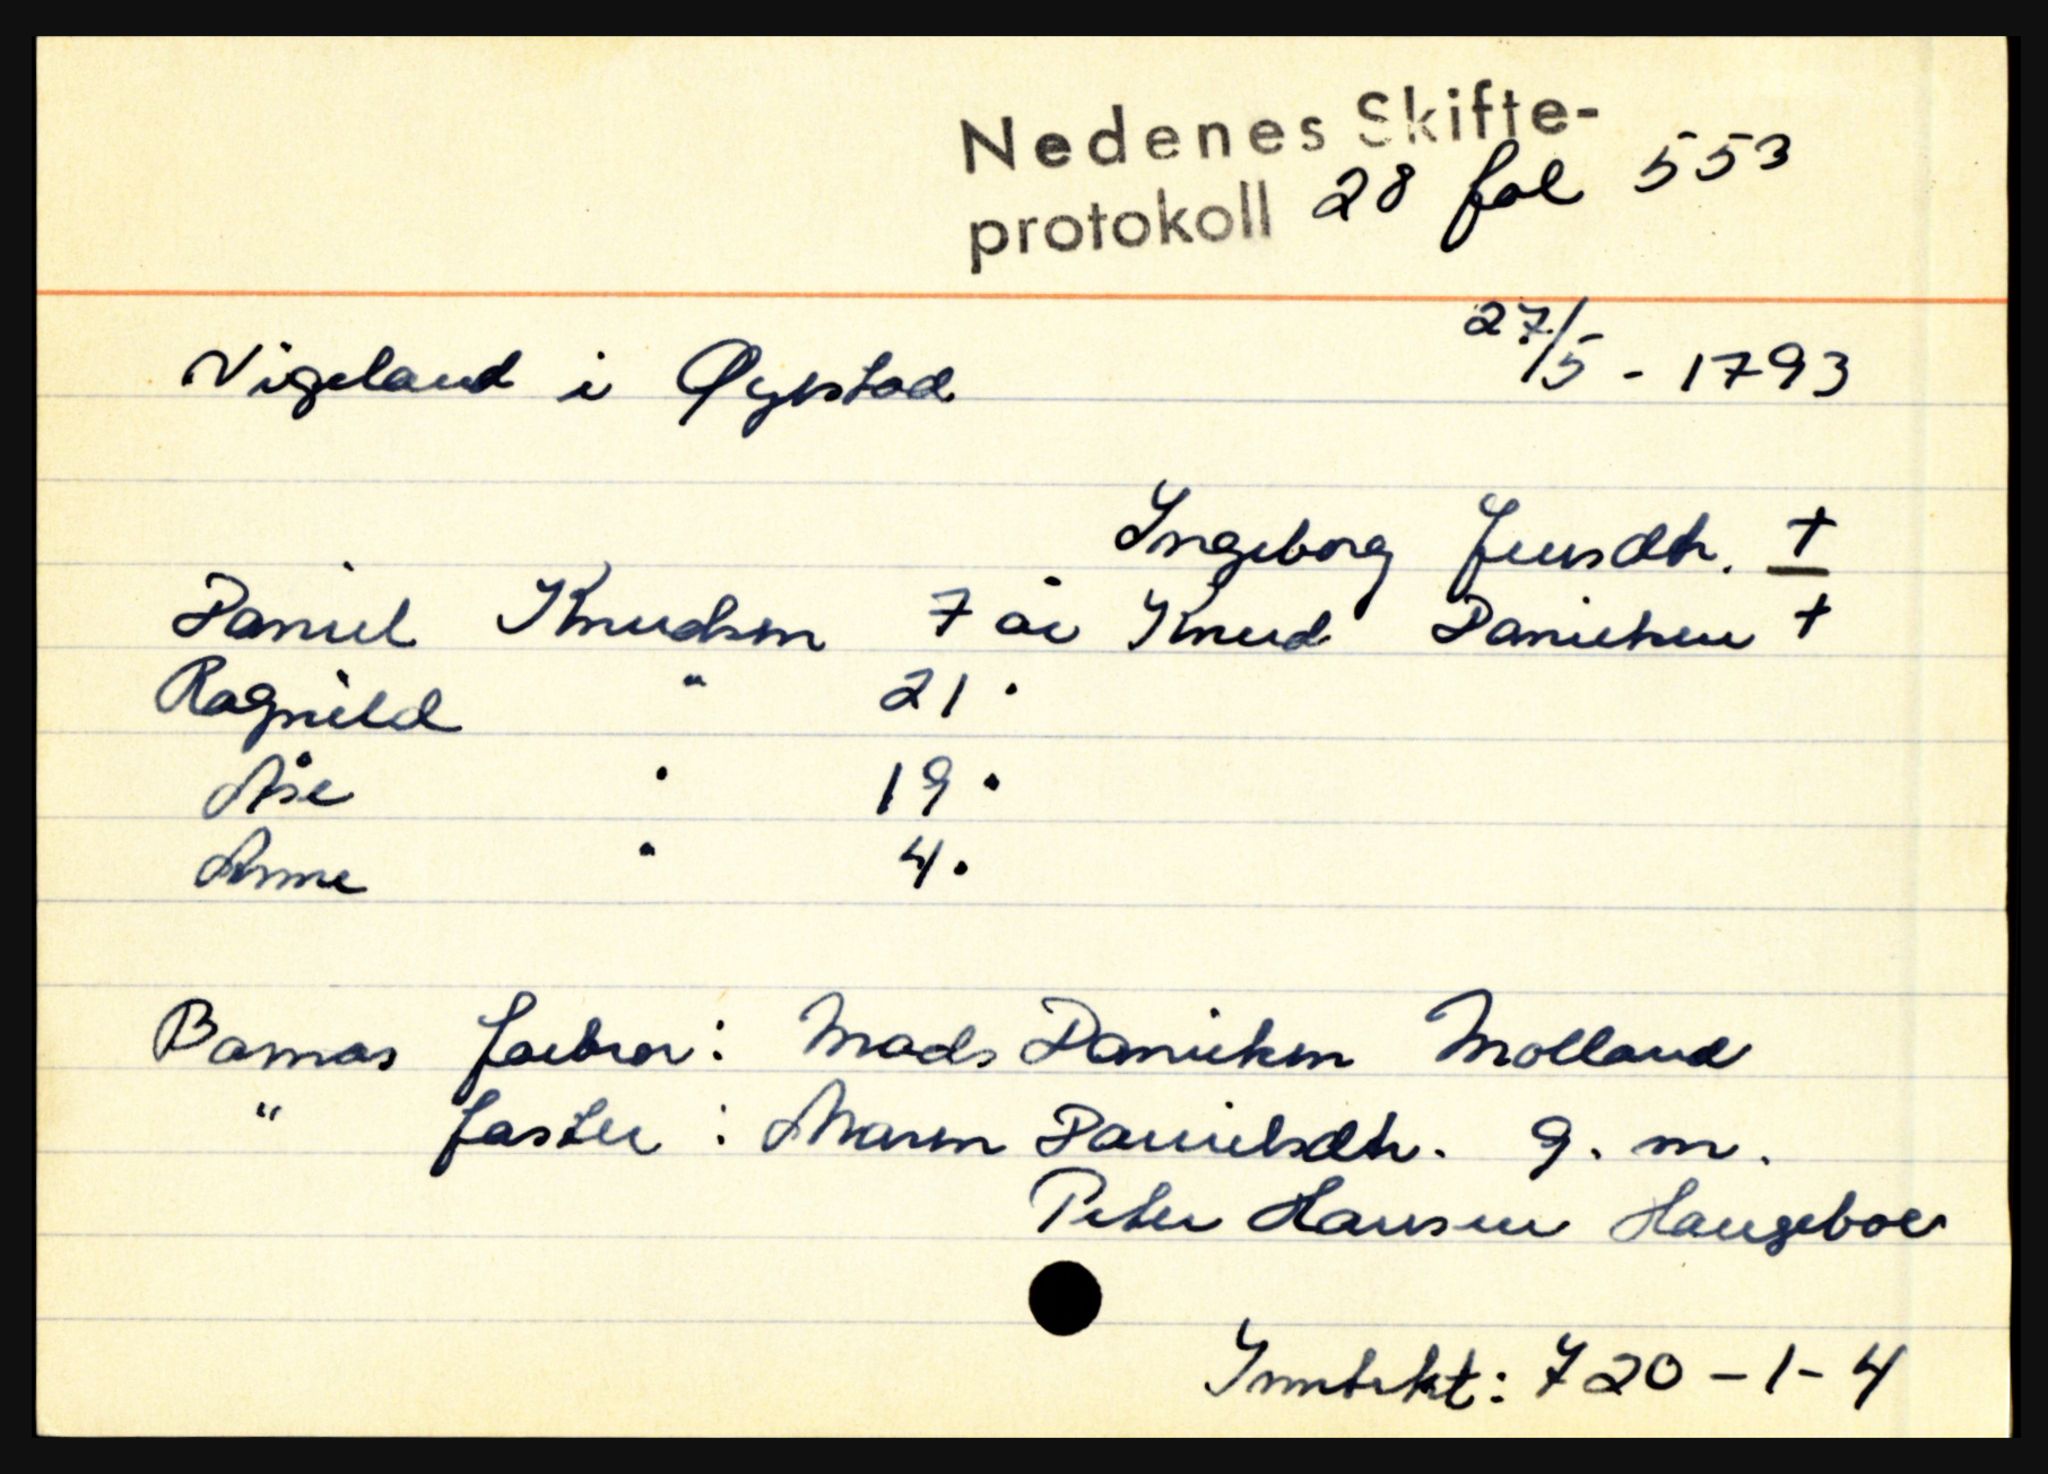 Nedenes Skifte-
protokoll 28 fol 553
27/5 - 1793
Vigeland i Øyestad
Ingeborg Jensdtr. †
Daniel Knudsen 7 år Knud Danielsen †
Ragnild " 21 "
Åse " 19 "
Anne " 4 "
Barnas farbror: Mads Danielsen Molland
" faster : Maren Danielsdtr. g. m.
Peter Hansen Haugeboe
Inntekt: 720 - 1 - 4